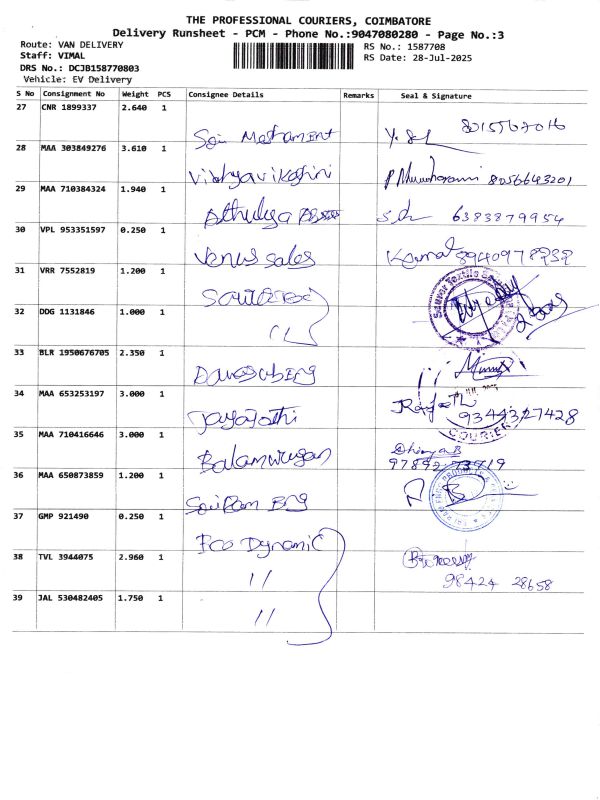 THE PROFESSIONAL COURIERS, COIMBATORE
Delivery Runsheet - PCM - Phone No.:9047080280 - Page No.:3
Route: VAN DELIVERY
Staff: VIMAL
DRS No.: DCJB158770803
Vehicle: EV Delivery
RS No.: 1587708
RS Date: 28-Jul-2025
S No Consignment No Weight PCS Consignee Details Remarks Seal & Signature
27 CNR 1899337 2.640 1
28 MAA 303849276 3.610 1 8056643201
29 MAA 710384324 1.940 1 Athulya 6383879954
30 VPL 953351597 0.250 1 Venus sales
31 VRR 7552819 1.200 1
32 DDG 1131846 1.000 1 "
33 BLR 1950676705 2.350 1
34 MAA 653253197 3.000 1 Jayajothi 9344327428
COURIER
35 MAA 710416646 3.000 1 Balamurugan Dhivya B
36 MAA 650873859 1.200 1 SaiRam Eng
37 GMP 921490 0.250 1 Eco Dynamic
38 TVL 3944075 2.960 1 " 98424 28658
39 JAL 530482405 1.750 1 "